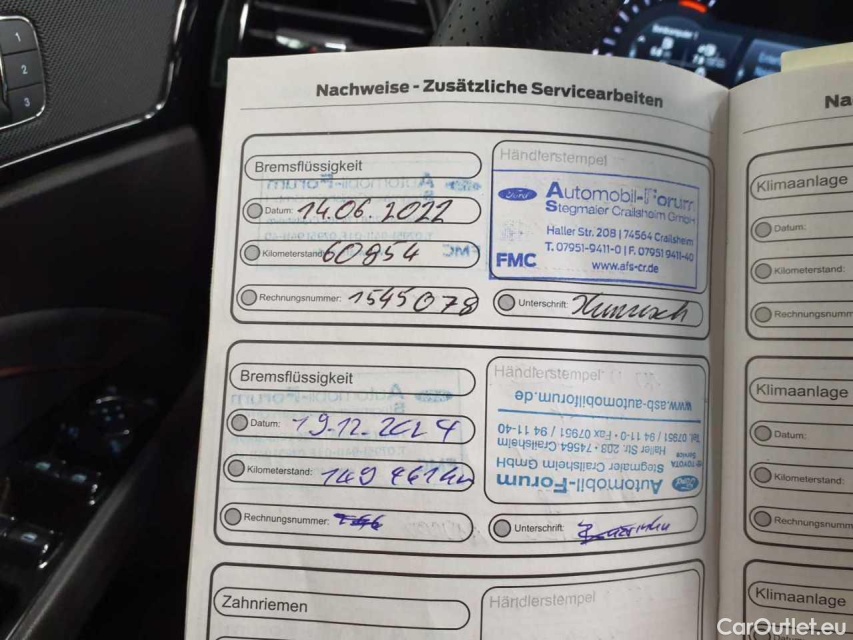 1
2
3
Nachweise - Zusätzliche Servicearbeiten
Na
Bremsflüssigkeit
Datum: 14.06.2022
Kilometerstand: 60854
Rechnungsnummer: 1545078
Händlerstempel
Ford
Automobil-Forum
Stegmaier Crailsheim GmbH
Haller Str. 208 | 74564 Crailsheim
T. 07951-9411-0 | F. 07951 9411-40
FMC
www.afs-cr.de
Unterschrift:
Klimaanlage
Datum:
Kilometerstand:
Rechnungsnumm
Bremsflüssigkeit
Datum: 19.12.2024
Kilometerstand:
Rechnungsnummer:
Händlerstempel
Ford
Automobil-Forum
Stegmaier Crailsheim GmbH
TOYOTA
Service
Haller Str. 208 · 74564 Crailsheim
Tel. 07951 / 94 11-0 · Fax 07951 / 94 11-40
www.asb-automobilforum.de
Unterschrift:
Klimaanlage
Datum:
Kilometerstand:
Rechnungsnumm
Zahnriemen
Händlerstempel
Klimaanlage
CarOutlet.eu